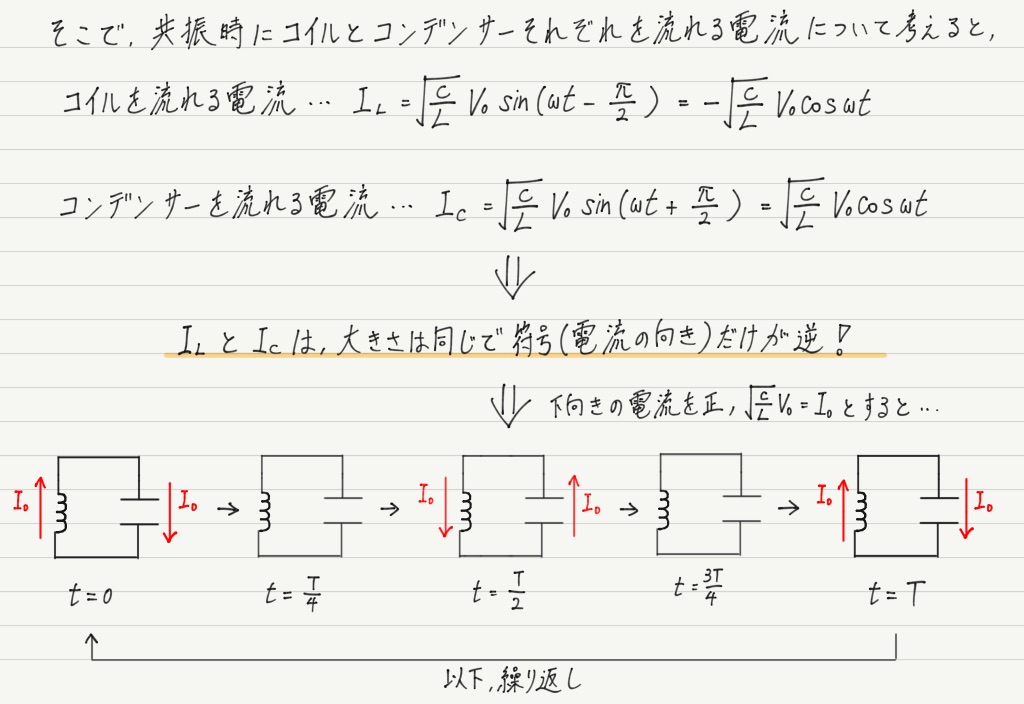 そこで, 共振時にコイルとコンデンサーそれぞれを流れる電流について考えると,
コイルを流れる電流 … I_L = √(C/L) V₀ sin(ωt − π/2) = −√(C/L) V₀ cos ωt
コンデンサーを流れる電流 … I_C = √(C/L) V₀ sin(ωt + π/2) = √(C/L) V₀ cos ωt
⇓
I_L と I_C は, 大きさは同じで符号(電流の向き)だけが逆!
⇓ 下向きの電流を正, √(C/L) V₀ = I₀ とすると…
I₀ ↑ ↓ I₀ → → I₀ ↓ ↑ I₀ → → I₀ ↑ ↓ I₀
t = 0 t = T/4 t = T/2 t = 3T/4 t = T
以下, 繰り返し